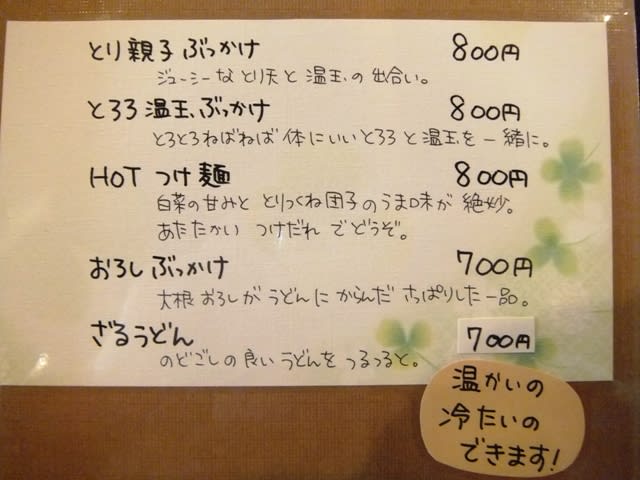 とり親子ぶっかけ 800円
ジューシーなとり天と温玉の出合い。
とろろ温玉ぶっかけ 800円
とろとろねばねば体にいいとろろと温玉を一緒に。
HOTつけ麺 800円
白菜の甘みととりつくね団子のうま味が絶妙。
あたたかいつけだれでどうぞ。
おろしぶっかけ 700円
大根おろしがうどんにからんださっぱりした一品。
ざるうどん 700円
のどごしの良いうどんをつるつると。
温かいの
冷たいの
できます!